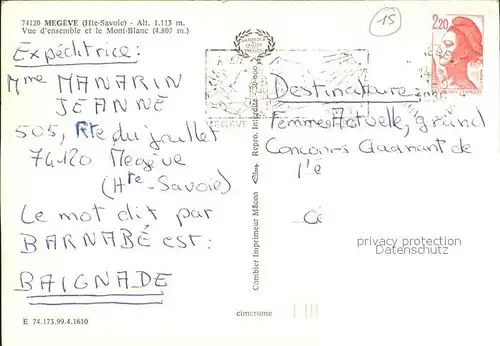 74120 MEGÈVE (Hte-Savoie) - Alt. 1.113 m.
Vue d'ensemble et le Mont-Blanc (4.807 m.)
Expéditrice :
Mme MANARIN
JEANNE
505, Rte du juillet
74120 Megève
(Hte-Savoie)
Le mot dit par
BARNABÉ est :
BAIGNADE
E 74.173.99.4.1610
15
2,20
MEGÈVE
Destinataire
Femme Actuelle, grand
Concours Gagnant de
l'é
Cé
privacy protection
Datenschutz
Combier Imprimeur Mâcon
Repro. Interdite
cimcrome